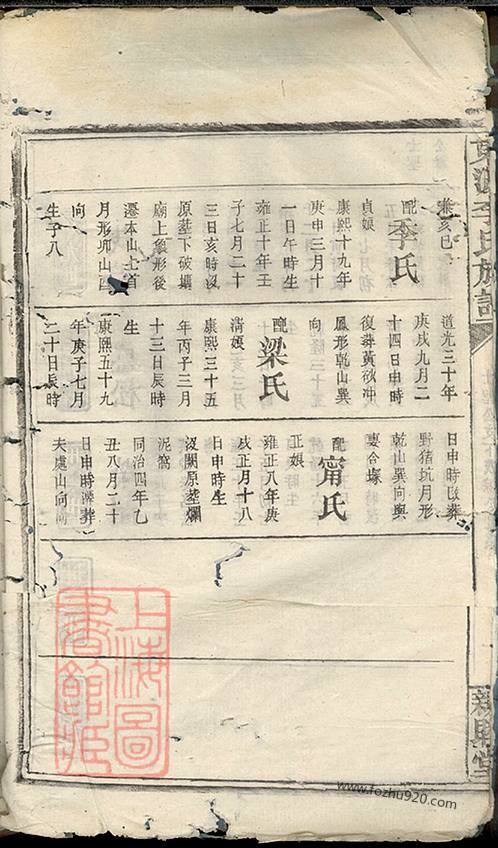 李氏族譜
癸亥巳
配季氏
貞娘
康熙十九年
庚申三月十
一日午時生
雍正十年壬
子七月二十
三日亥時沒
原塟下破壙
廟上象形後
遷本山上首
月形卯山酉
向
生子八
道光三十年
庚戌九月二
十四日申時
復葬黃砂冲
鳳形乾山巽
向
配梁氏
清娘
康熙三十五
年丙子三月
十三日辰時
生
康熙五十九
年庚子七月
二十日辰時
日申時改葬
野猪坑月形
乾山巽向與
妻合塚
配甯氏
正娘
雍正八年庚
戌正月十八
日申時生
沒闕原塟爛
泥窩
同治四年乙
丑八月二十
日申時遷葬
夫處山向同
新興堂
上海圖書館藏
www.fozhu920.com